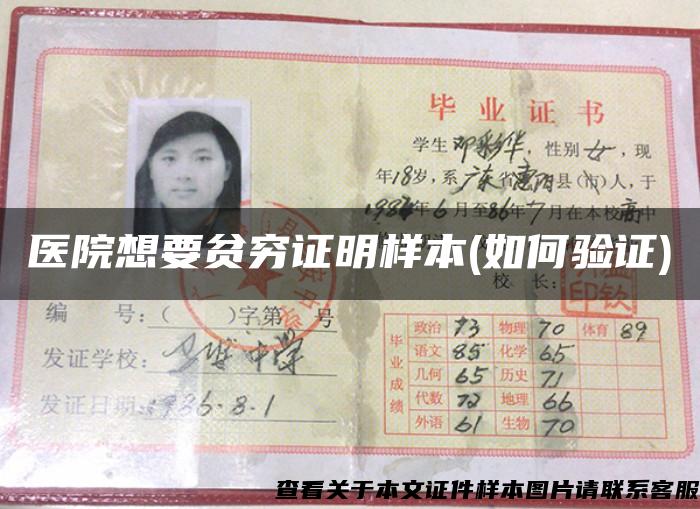 毕业证书
学生邓彩华，性别女，现
年18岁，系广东省惠阳县(市)人，于
1984年6月至86年7月在本校高中
医院想要贫穷证明样本(如何验证)
校 长：
编 号：( )字第 号
发证学校：
中学
发证日期：1986.8.1
毕业成绩
政治 73 物理 70 体育 89
语文 85 化学 65
几何 65 历史 71
代数 72 地理 66
外语 61 生物 70
查看关于本文证件样本图片请联系客服